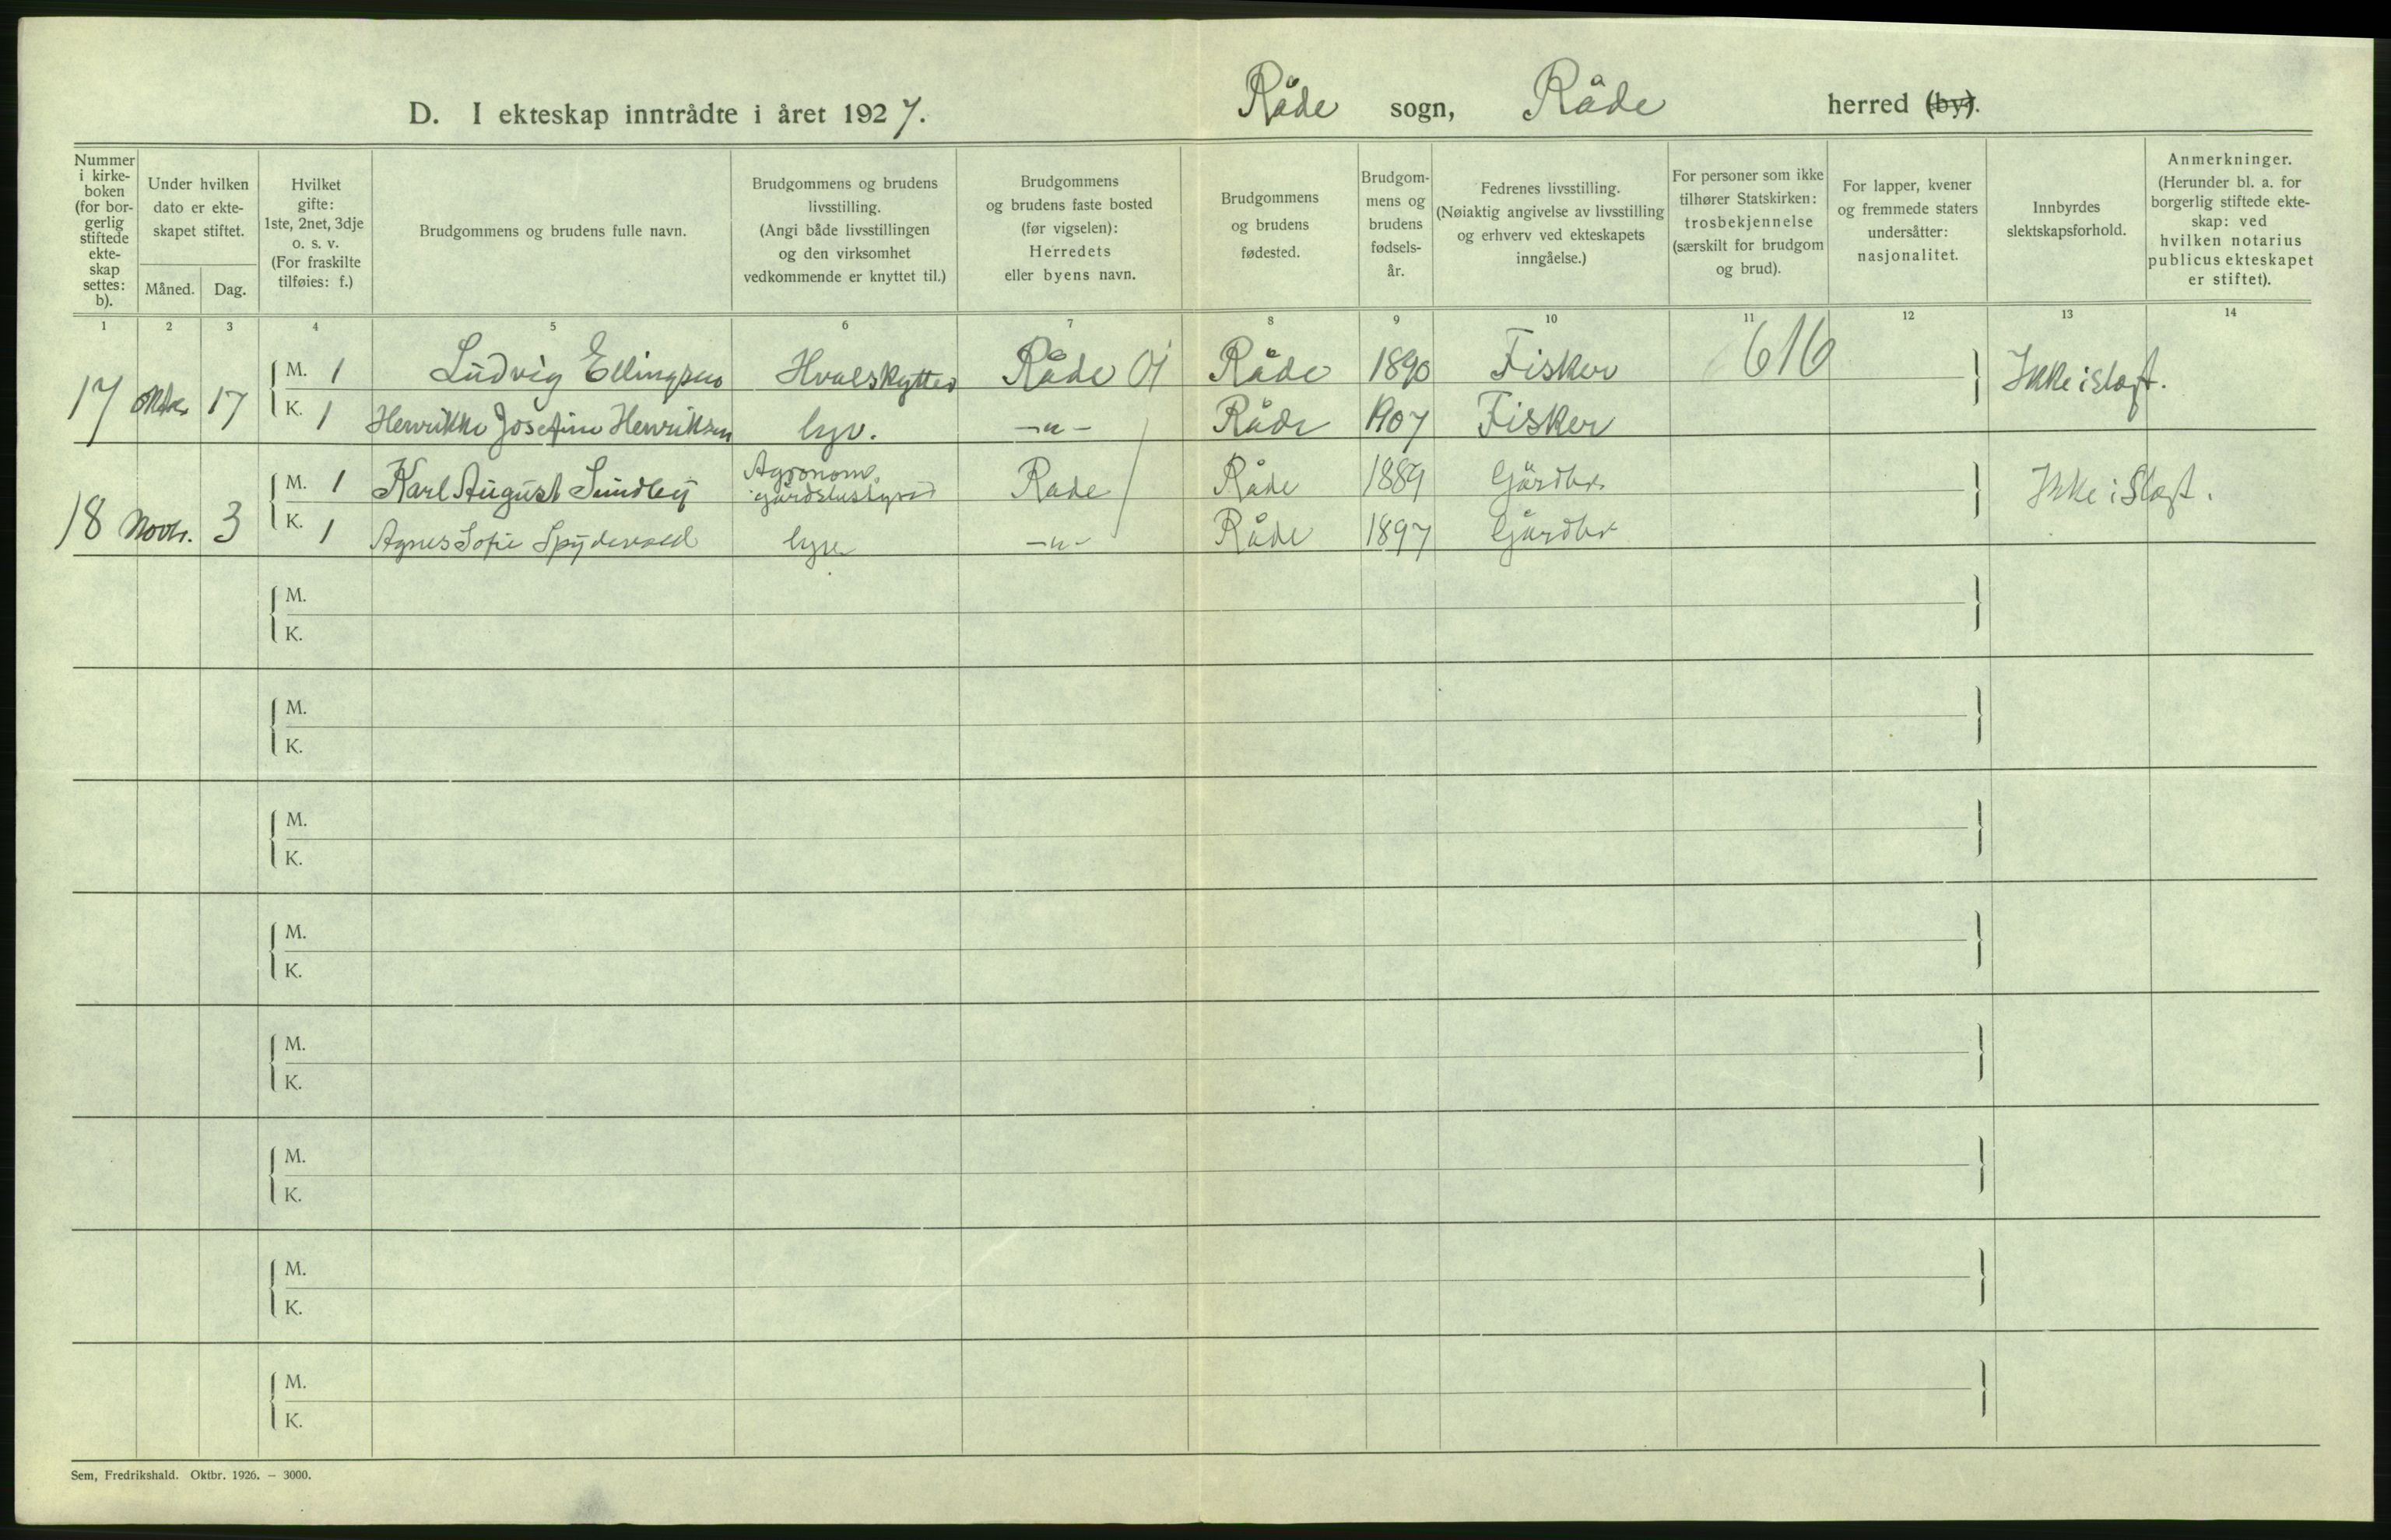 D. I ekteskap inntrådte i året 1927. Råde sogn, Råde herred (by).
Nummer
i kirke-
boken
(for bor-
gerlig
stiftede
ekte-
skap
settes:
b).
Under hvilken
dato er ekte-
skapet stiftet.
Måned. Dag.
Hvilket
gifte:
1ste, 2net, 3dje
o. s. v.
(For fraskilte
tilføies: f.)
Brudgommens og brudens fulle navn.
Brudgommens og brudens
livsstilling.
(Angi både livsstillingen
og den virksomhet
vedkommende er knyttet til.)
Brudgommens
og brudens faste bosted
(før vigselen):
Herredets
eller byens navn.
Brudgommens
og brudens
fødested.
Brudgom-
mens og
brudens
fødsels-
år.
Fedrenes livsstilling.
(Nøiaktig angivelse av livsstilling
og erhverv ved ekteskapets
inngåelse.)
For personer som ikke
tilhører Statskirken:
trosbekjennelse
(særskilt for brudgom
og brud).
For lapper, kvener
og fremmede staters
undersåtter:
nasjonalitet.
Innbyrdes
slektskapsforhold.
Anmerkninger.
(Herunder bl. a. for
borgerlig stiftede ekte-
skap: ved
hvilken notarius
publicus ekteskapet
er stiftet).
1 2 3 4 5 6 7 8 9 10 11 12 13 14
17 17 M. 1 Ludvig Ellingsen Hvalskytter Råde Råde 1890 Fisker 616 Ikke i slegt.
K. 1 Henrikke Josefine Henriksen —"— Råde 1907 Fisker
18 Novbr. 3 M. 1 Karl August Sundby Agronom Råde Råde 1889 Gårdbr. Ikke i slegt.
gårdsbestyrer
K. 1 Agnes Sofie Spydevold —"— Råde 1897 Gårdbr
M.
K.
M.
K.
M.
K.
M.
K.
M.
K.
M.
K.
M.
K.
M.
K.
Sem, Fredrikshald. Oktbr. 1926. — 3000.